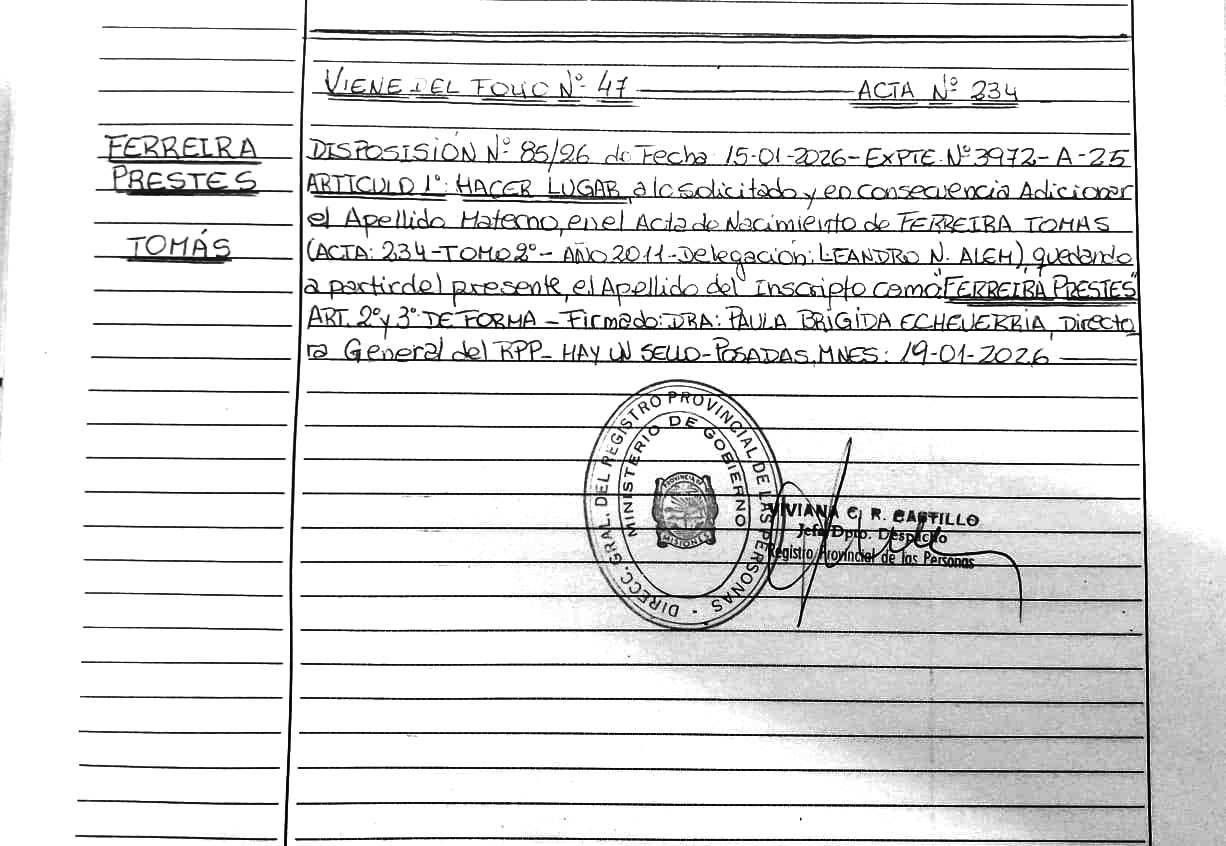 VIENE DEL FOLIO Nº 47 ACTA Nº 234
FERREIRA
PRESTES
TOMÁS
DISPOSISIÓN Nº 85/26 de Fecha 15-01-2026-EXPTE. Nº3972-A-25
ARTICULO 1º: HACER LUGAR, a lo solicitado y en consecuencia Adicionar
el Apellido Materno, en el Acta de Nacimiento de FERREIRA TOMAS
(ACTA: 234-TOMO 2º- AÑO 2011-Delegación: LEANDRO N. ALEM), quedando
a partir del presente, el Apellido del Inscripto como "FERREIRA PRESTES"
ART. 2º y 3º DE FORMA - Firmado: DRA: PAULA BRIGIDA ECHEVERRIA, Directo
ra General del RPP- HAY UN SELLO-POSADAS, MNES: 19-01-2026
DIRECC. GRAL. DEL REGISTRO PROVINCIAL DE LAS PERSONAS -
MINISTERIO DE GOBIERNO
PROVINCIA DE
MISIONES
VIVIANA C. R. CASTILLO
Jefe Dpto. Despacho
Registro Provincial de las Personas